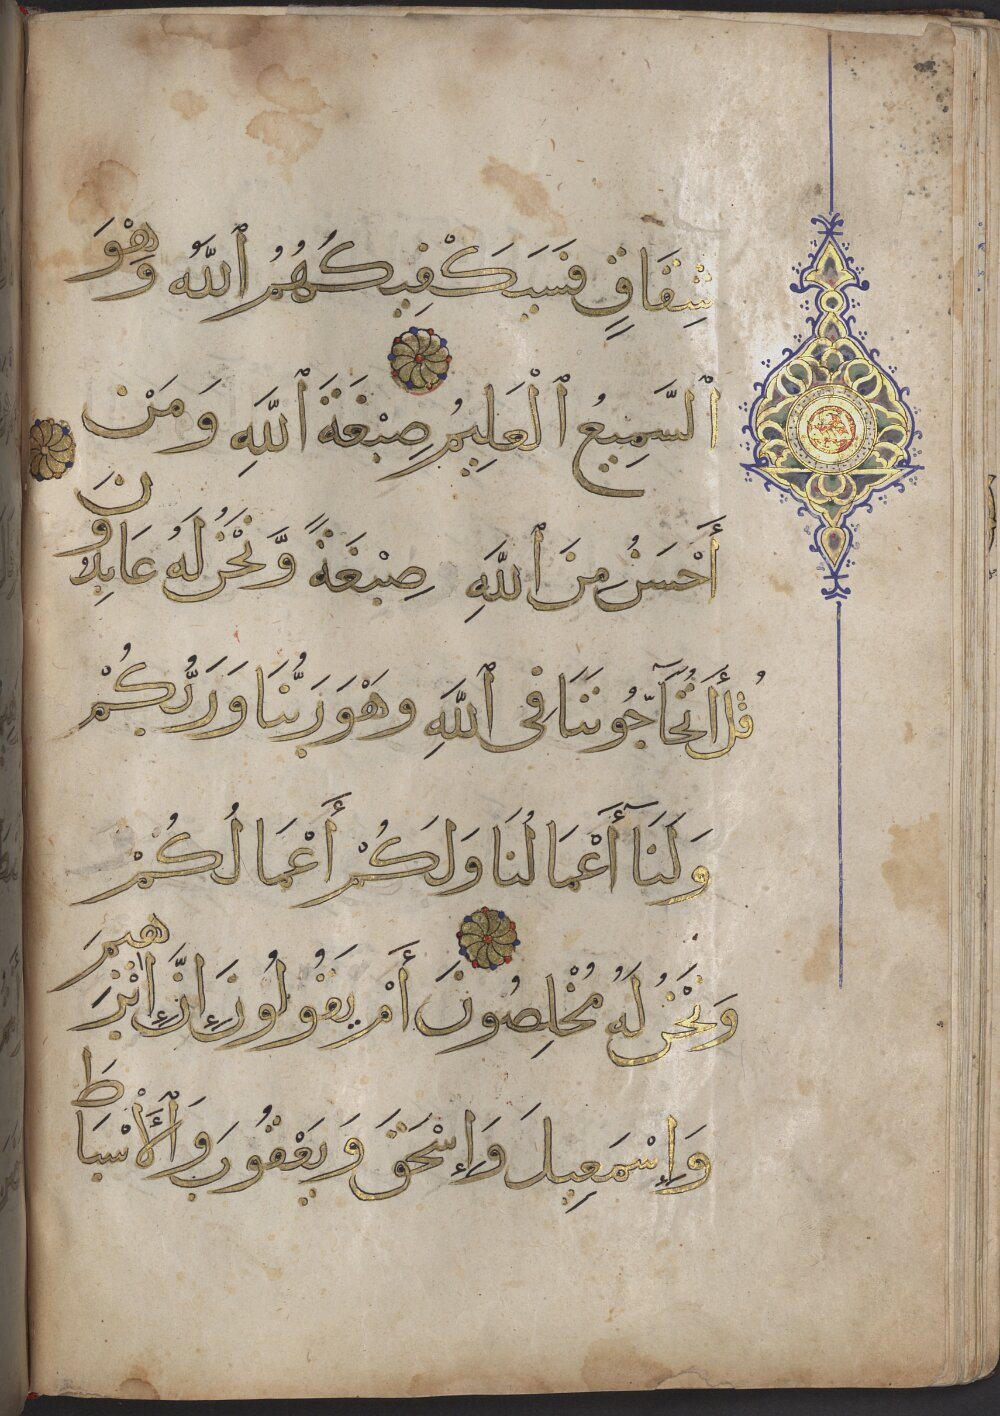 شِقَاقٍ فَسَيَكْفِيكَهُمُ ٱللَّهُ وَهْوَ
ٱلسَّمِيعُ ٱلْعَلِيمُ صِبْغَةَ ٱللَّهِ وَمَنْ
أَحْسَنُ مِنَ ٱللَّهِ صِبْغَةً وَّنَحْنُ لَهُ عَابِدُونَ
قُلْ أَتُحَآجُّونَنَا فِى ٱللَّهِ وَهْوَ رَبُّنَا وَرَبُّكُمْ
وَلَنَآ أَعْمَالُنَا وَلَكُمْ أَعْمَالُكُمْ
وَنَحْنُ لَهُ مُخْلِصُونَ أَمْ يَقُولُونَ إِنَّ إِبْرَهِيمَ
وَإِسْمَعِيلَ وَإِسْحَقَ وَيَعْقُوبَ وَٱلْأَسْبَاطَ